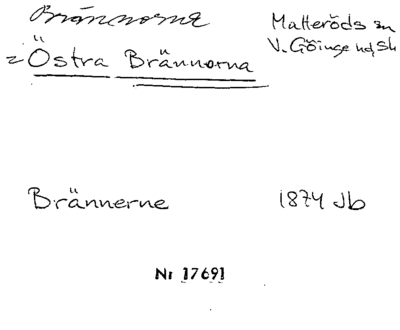 Brännorna
Matteröds sn
= Östra Brännorna
V. Göinge hd, Sk
Brännerne
1874 Jb
Nr 17691